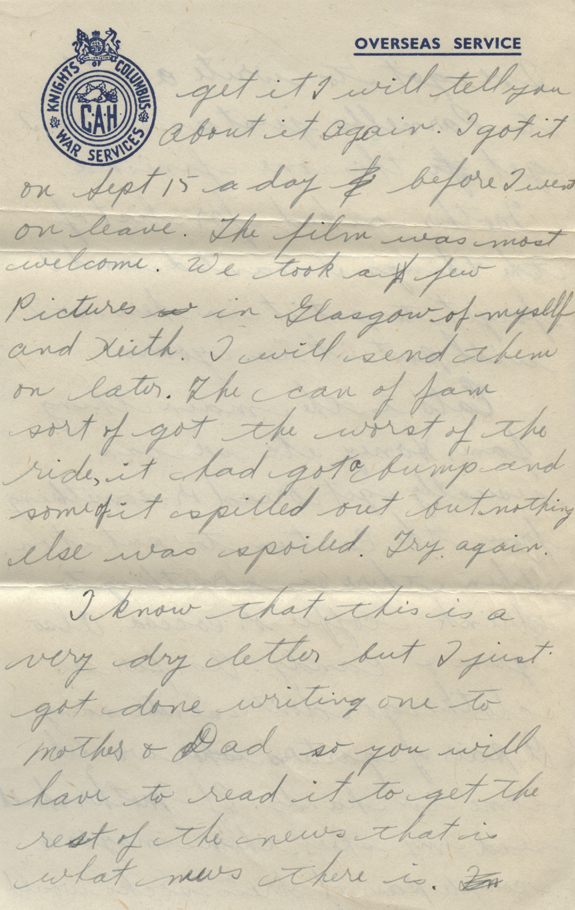 KNIGHTS OF COLUMBUS
C·A·H
WAR SERVICES
OVERSEAS SERVICE
get it I will tell you
about it again. I got it
on Sept 15 a day before I went
on leave. The film was most
welcome. We took a few
Pictures in Glasgow of myself
and Keith. I will send them
on later. The can of jam
sort of got the worst of the
ride, it had got a bump and
some of it spilled out but nothing
else was spoiled. Try again.
I know that this is a
very dry letter but I just
got done writing one to
mother & Dad so you will
have to read it to get the
rest of the news that is
what news there is.